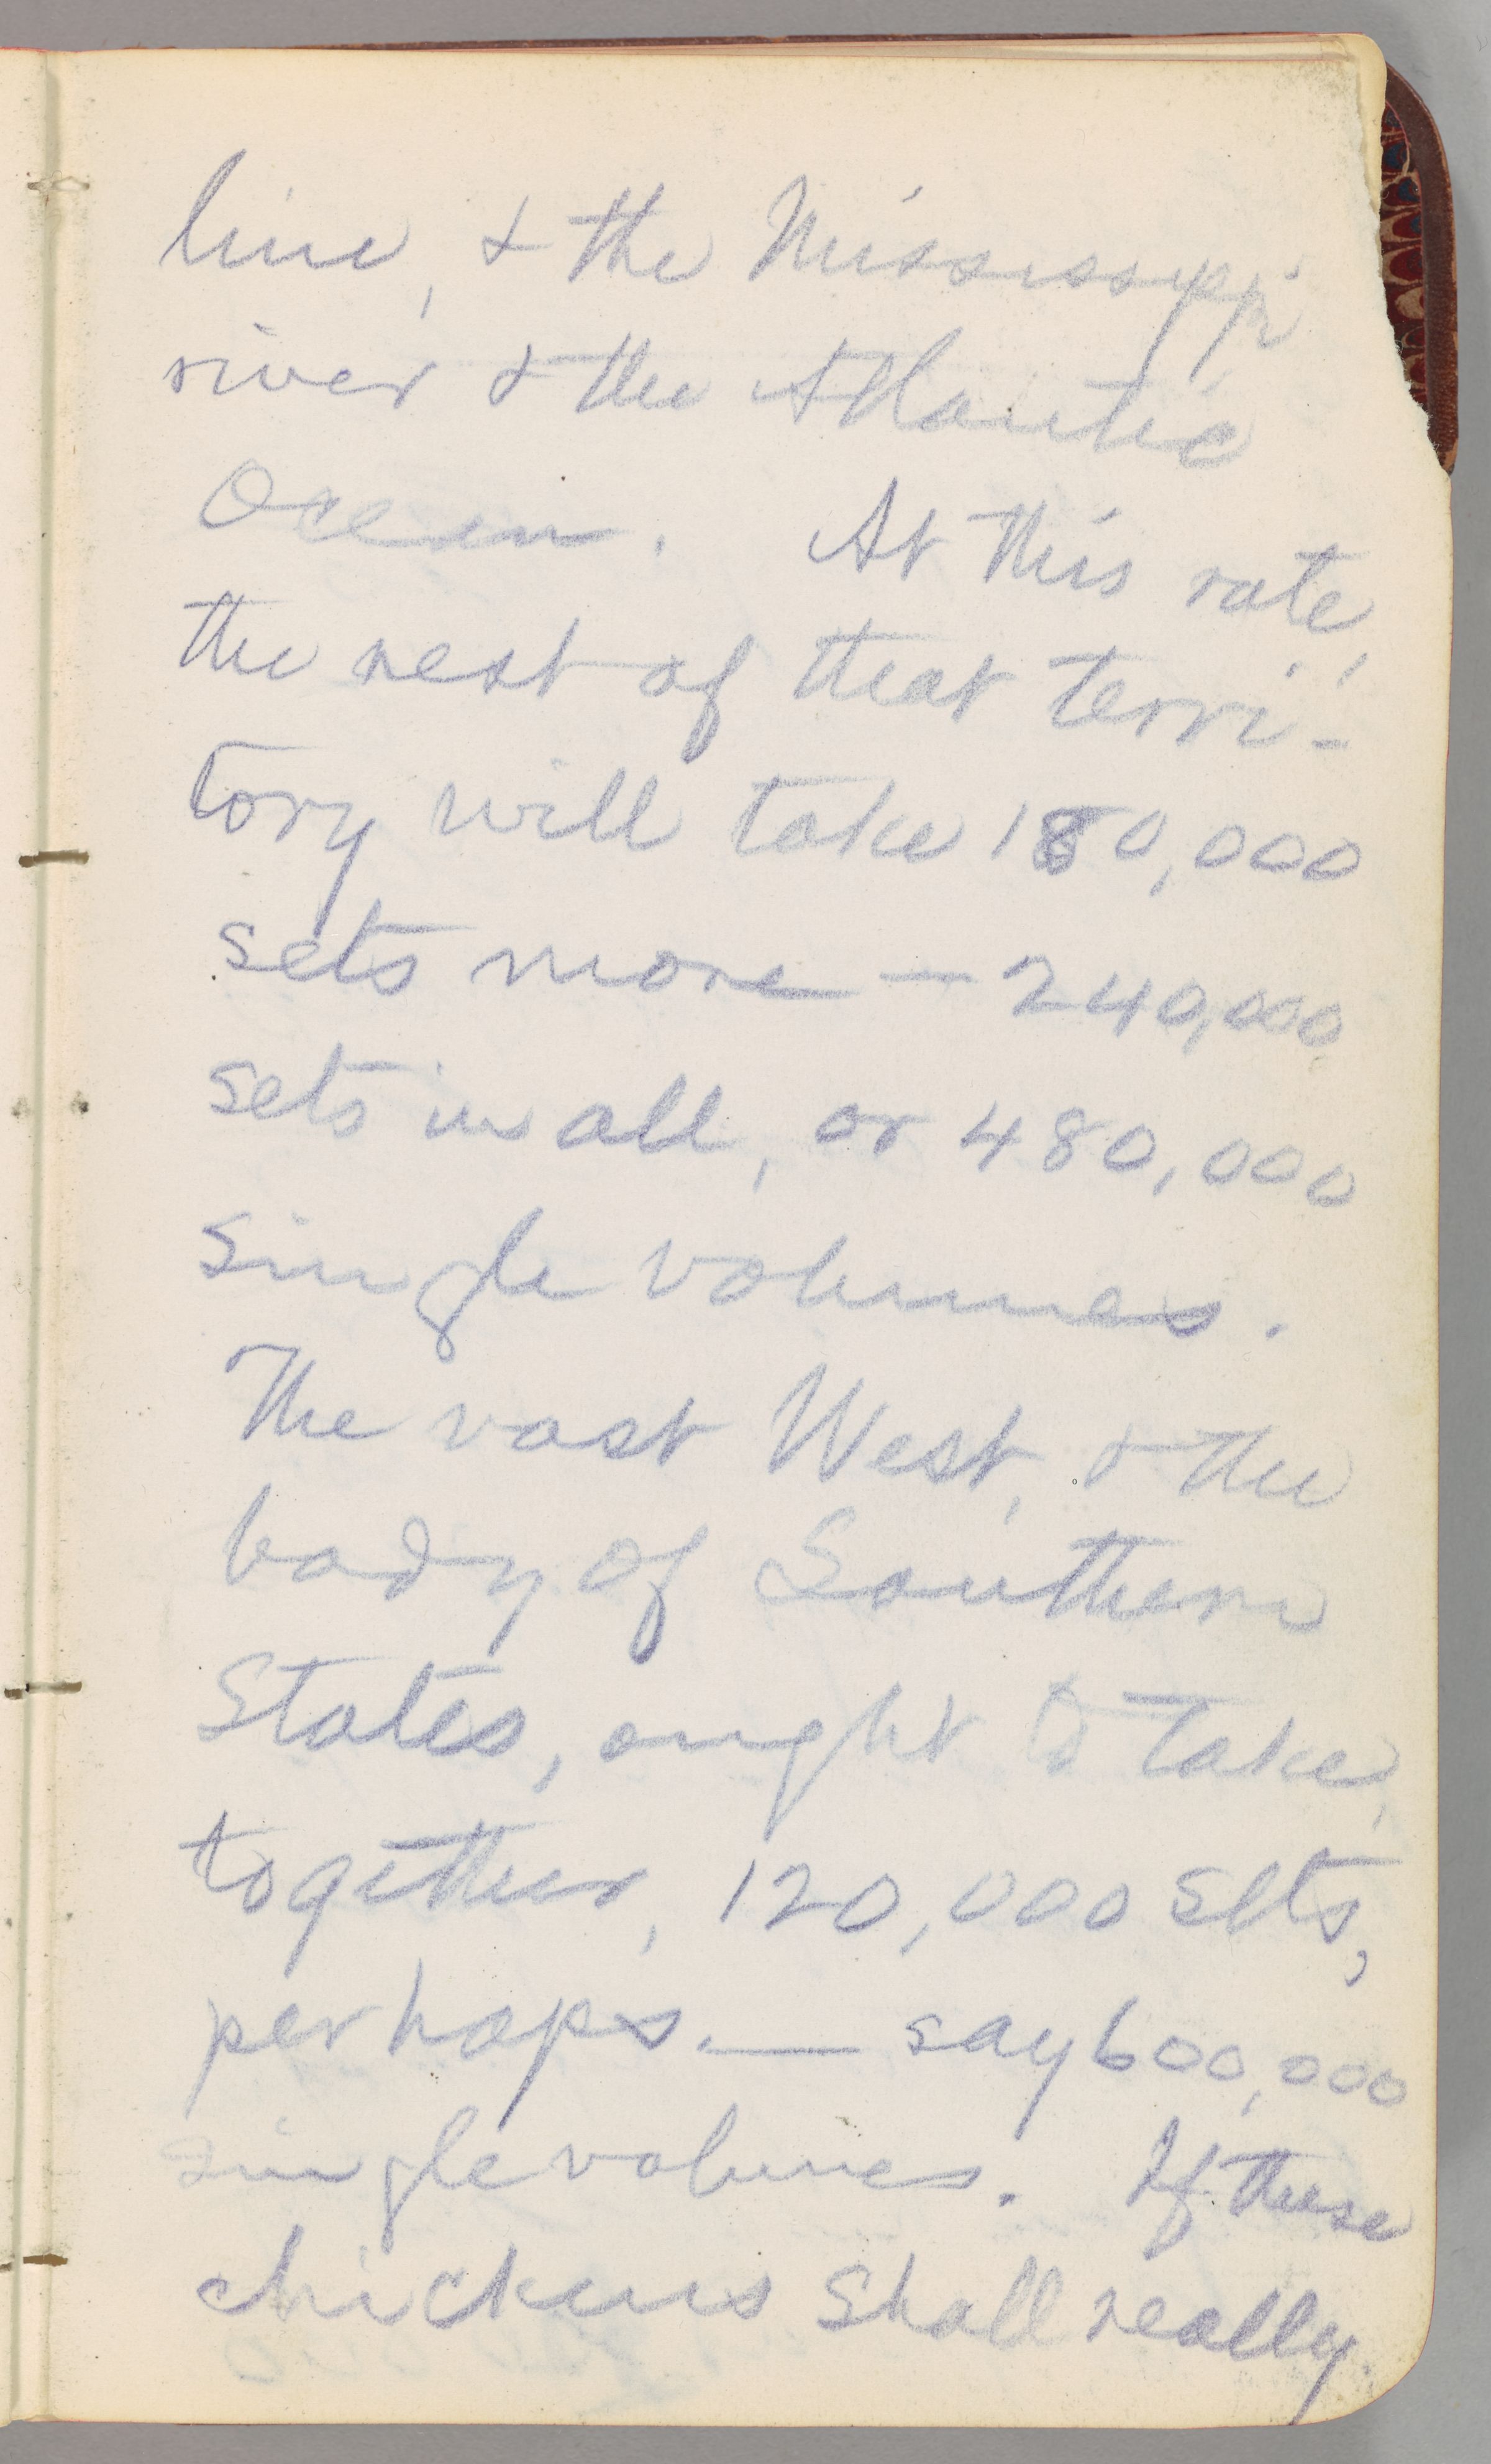 line, & the Mississippi
river & the Atlantic
Ocean. At this rate,
the rest of that terri-
tory will take 180,000
sets more — 240,000
sets in all, or 480,000
single volumes.
The vast West, & the
body of Southern
States, ought to take,
together, 120,000 sets,
perhaps. — say 600,000
single volumes. If these
chickens shall really